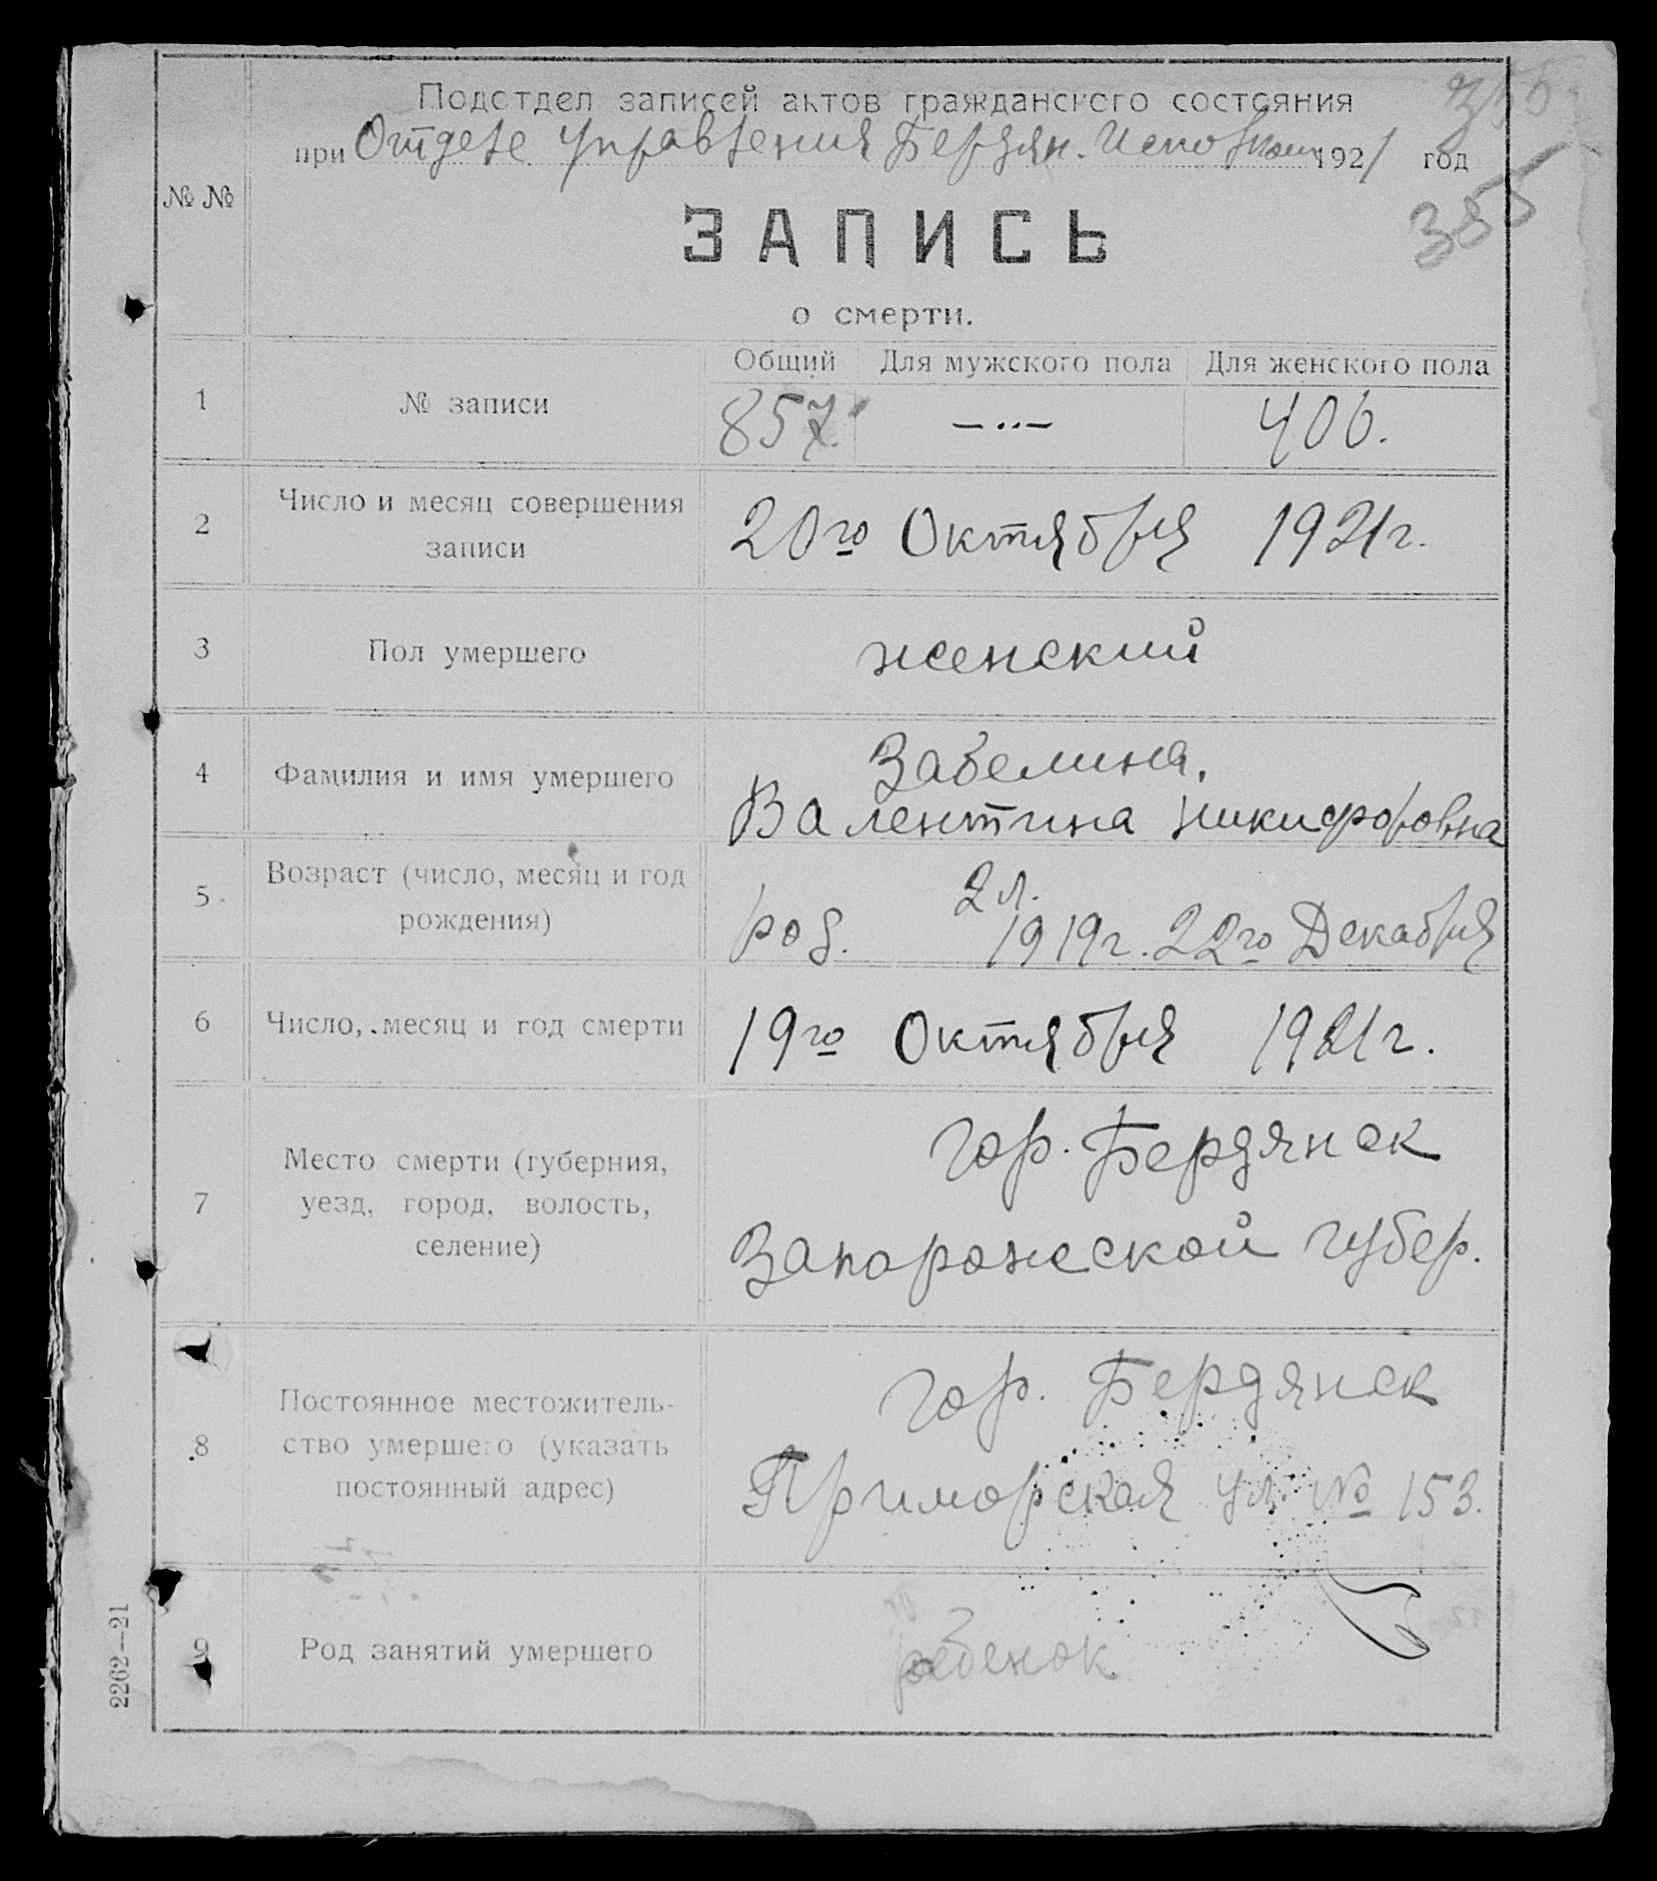 355
Подотдел записей актов гражданского состояния
при Отделе Управления Бердян. Исполкома 1921 год
385
№ №
ЗАПИСЬ
о смерти.
Общий Для мужского пола Для женского пола
1 № записи 857. —··— 406.
2 Число и месяц совершения
записи
20го Октября 1921г.
3 Пол умершего женский
4 Фамилия и имя умершего
Забелина,
Валентина Никифоровна
5 Возраст (число, месяц и год
рождения)
2 л.
род. 1919г. 22го Декабря
6 Число, месяц и год смерти 19го Октября 1921г.
7 Место смерти (губерния,
уезд, город, волость,
селение)
гор. Бердянск
Запорожской губер.
8 Постоянное местожитель-
ство умершего (указать
постоянный адрес)
гор. Бердянск
Приморская ул № 153.
9 Род занятий умершего ребенок
2262—21